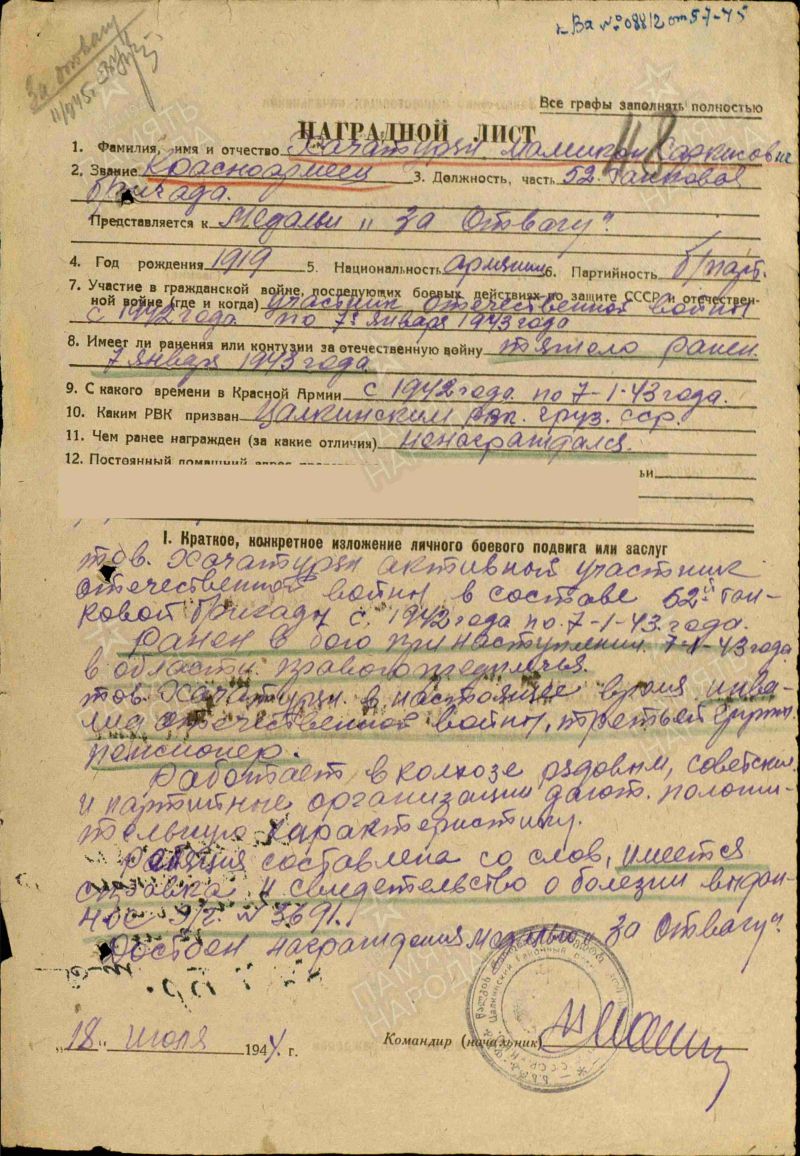 За отвагу
к Ва № 08812 от 5-7-45
Все графы заполнять полностью
48
НАГРАДНОЙ ЛИСТ
1. Фамилия, имя и отчество Хачатурян Мамикон Саркисович
2. Звание Красноармеец 3. Должность, часть 52 танковая
бригада.
Представляется к Медали „За Отвагу".
4. Год рождения 1919 5. Национальность армянин 6. Партийность б/парт.
7. Участие в гражданской войне, последующих боевых действиях по защите СССР и отечествен-
ной войне (где и когда) участник отечественной войны
с 1942 года по 7 января 1943 года
8. Имеет ли ранения или контузии за отечественную войну тяжело ранен
7 января 1943 года
9. С какого времени в Красной Армии с 1942 года по 7-1-43 года.
10. Каким РВК призван Цалкинским рвк. Груз. сср.
11. Чем ранее награжден (за какие отличия) ненаграждался.
12. Постоянный домашний адрес
I. Краткое, конкретное изложение личного боевого подвига или заслуг
тов. Хачатурян активной участник
отечественной войны в составе 52й тан-
ковой бригады с 1942 года по 7-1-43 года.
Ранен в бою при наступлении 7-1-43 года
в области правого предплечья.
тов. Хачатурян в настоящие время инва-
лид отечественной войны, третьей группы
пенсионер.
Работает в колхозе рядовым, советские
и партийные организации дают положи-
тельную характеристику.
составлена со слов, имеется
справка и свидетельство о болезни выдан-
ное э/г. № 3691.
Достоен награждения медалью „За Отвагу".
„18" июля 1944 г.
Командир (начальник)
ПАМЯТЬ НАРОДА